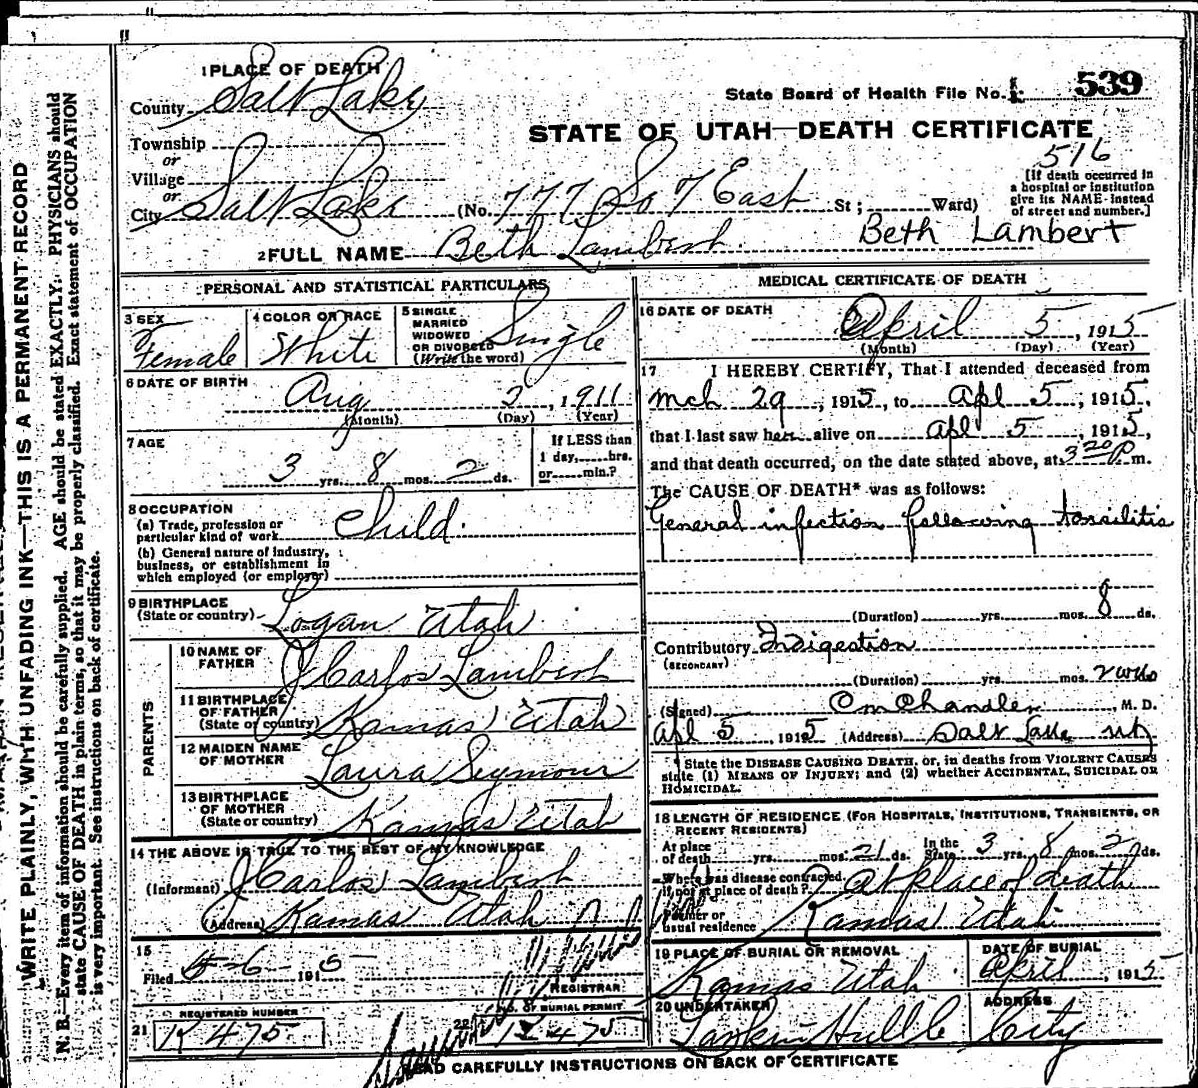 1 PLACE OF DEATH
County Salt Lake
State Board of Health File No. 539
STATE OF UTAH—DEATH CERTIFICATE
Township
or
Village
or
City Salt Lake (No. 777 So 7 East St; Ward)
516
[If death occurred in
a hospital or institution
give its NAME instead
of street and number.]
2 FULL NAME Beth Lambert Beth Lambert
PERSONAL AND STATISTICAL PARTICULARS
3 SEX Female
4 COLOR OR RACE White
5 SINGLE
MARRIED
WIDOWED
OR DIVORCED
(Write the word) Single
6 DATE OF BIRTH
Aug 2, 1911
(Month) (Day) (Year)
7 AGE
3 yrs. 8 mos. 2 ds.
If LESS than
1 day, hrs.
or min.?
8 OCCUPATION
(a) Trade, profession or
particular kind of work Child
(b) General nature of industry,
business, or establishment in
which employed (or employer)
9 BIRTHPLACE
(State or country) Logan Utah
PARENTS
10 NAME OF
FATHER J Carlos Lambert
11 BIRTHPLACE
OF FATHER
(State of country) Kamas Utah
12 MAIDEN NAME
OF MOTHER Laura Seymour
13 BIRTHPLACE
OF MOTHER
(State or country) Kamas Utah
14 THE ABOVE IS TRUE TO THE BEST OF MY KNOWLEDGE
(Informant) J Carlos Lambert
(Address) Kamas Utah
15
Filed 4-6- 1915
REGISTRAR
REGISTERED NUMBER
21 K 475
NO. OF BURIAL PERMIT
22 K 475
MEDICAL CERTIFICATE OF DEATH
16 DATE OF DEATH
April 5, 1915
(Month) (Day) (Year)
17 I HEREBY CERTIFY, That I attended deceased from
mch 29, 1915, to Apl 5, 1915,
that I last saw her alive on Apl 5, 1915,
and that death occurred, on the date stated above, at 3 20 P m.
The CAUSE OF DEATH* was as follows:
General infection following tonsilitis
(Duration) yrs. mos. 8 ds.
Contributory Indigestion
(SECONDARY)
(Duration) yrs. mos. 2 wks
(Signed) O M Chandler, M. D.
Apl 5, 1915 (Address) Salt Lake
*State the DISEASE CAUSING DEATH, or, in deaths from VIOLENT CAUSES
state (1) MEANS OF INJURY; and (2) whether ACCIDENTAL, SUICIDAL OR
HOMICIDAL.
18 LENGTH OF RESIDENCE (FOR HOSPITALS, INSTITUTIONS, TRANSIENTS, OR
RECENT RESIDENTS)
At place
of death yrs. mos. 21 ds. In the
State 3 yrs. 8 mos. 2 ds.
Where was disease contracted,
if not at place of death? At place of death
Former or
usual residence Kamas Utah
19 PLACE OF BURIAL OR REMOVAL
Kamas Utah
DATE OF BURIAL
April, 1915
20 UNDERTAKER
ADDRESS
City
READ CAREFULLY INSTRUCTIONS ON BACK OF CERTIFICATE
WRITE PLAINLY, WITH UNFADING INK—THIS IS A PERMANENT RECORD
N. B.—Every item of information should be carefully supplied. AGE should be stated EXACTLY. PHYSICIANS should
state CAUSE OF DEATH in plain terms, so that it may be properly classified. Exact statement of OCCUPATION
is very important. See instructions on back of certificate.